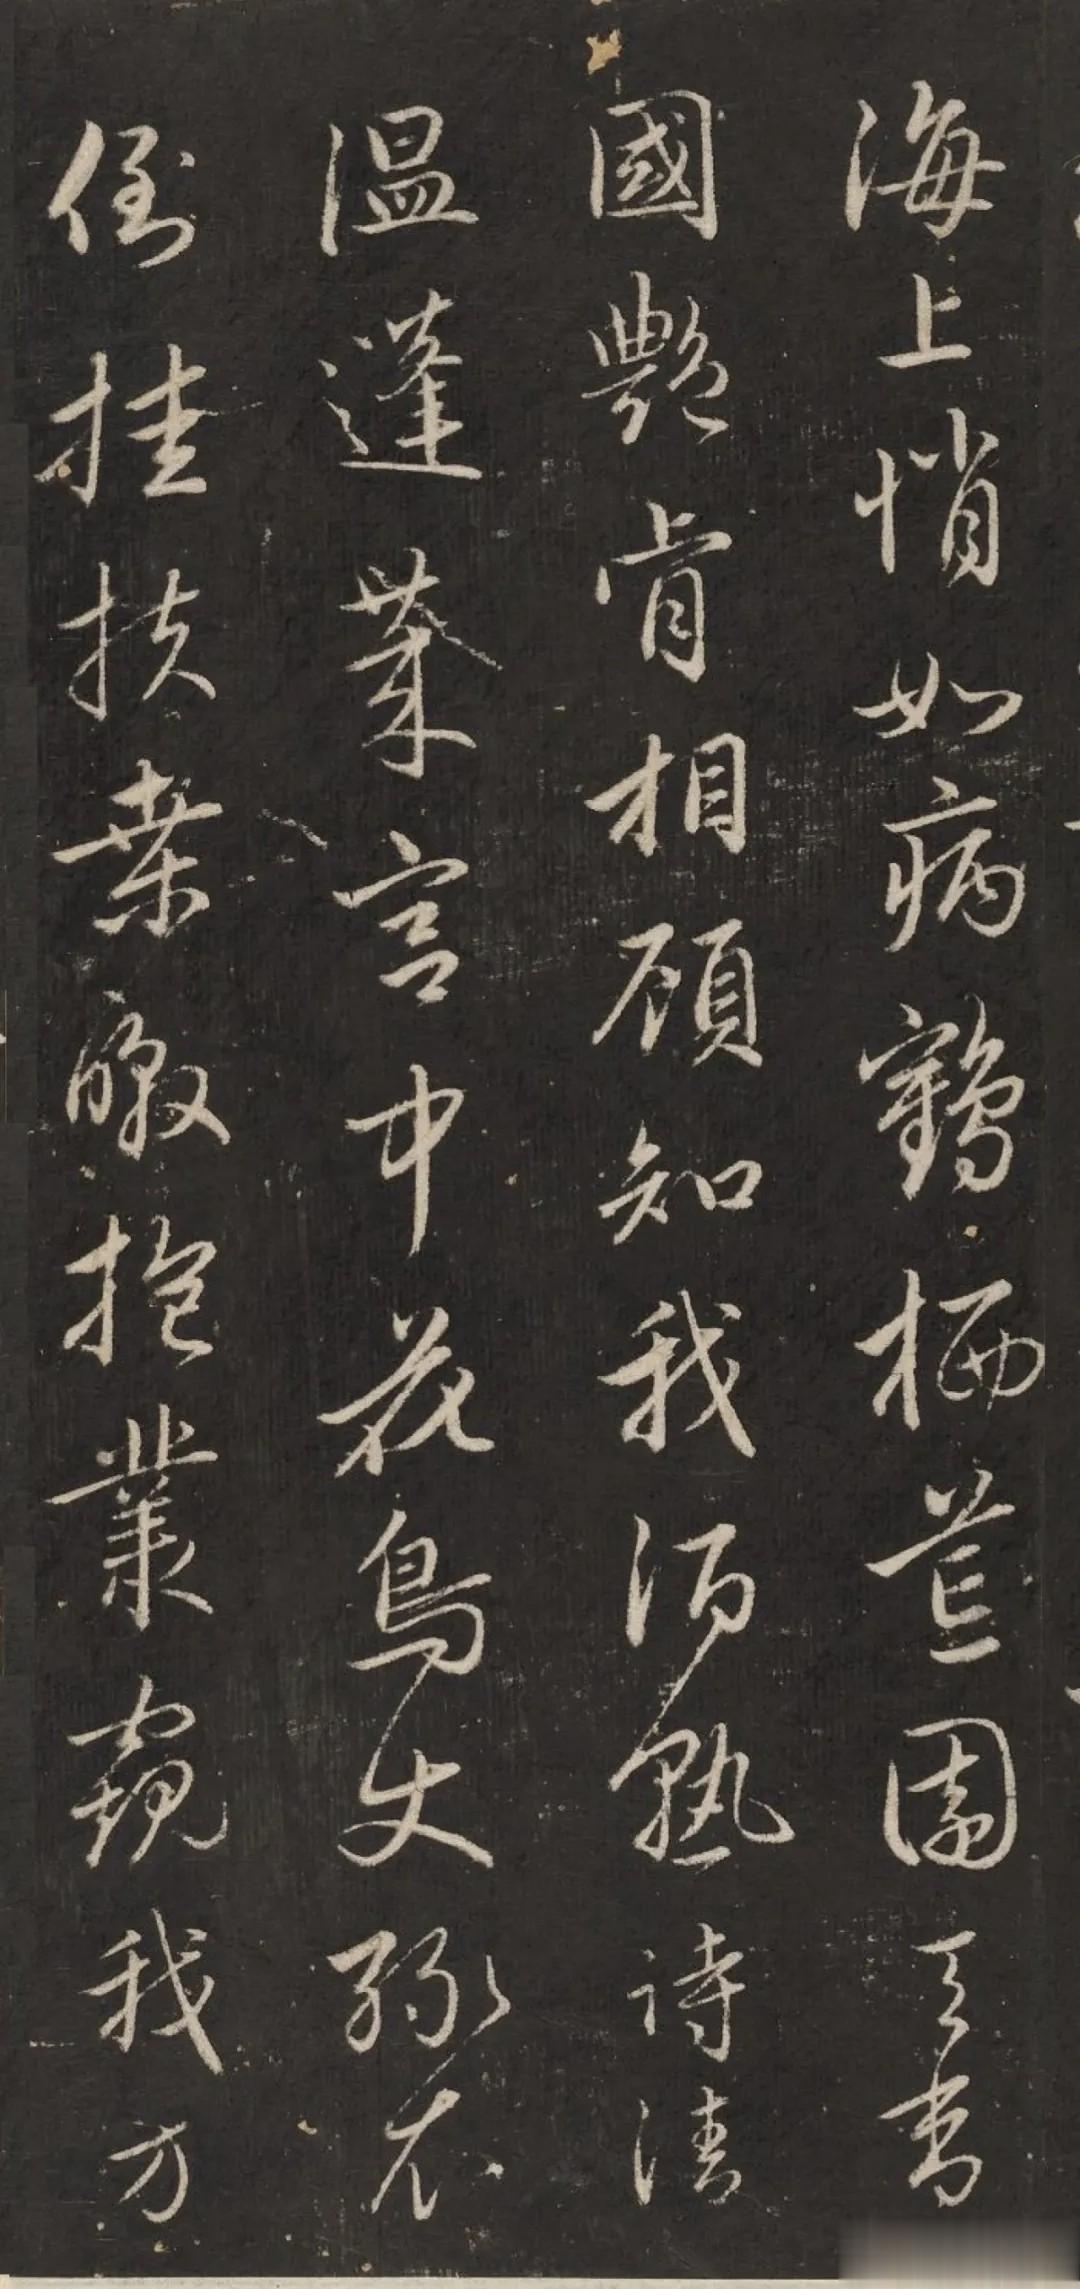 海上悄如病鶴栖荒園天香
國艷肯相顧知我酒熟詩清
温蓬萊宮中花鳥使綠衣
倒挂扶桑暾抱叢窺我方